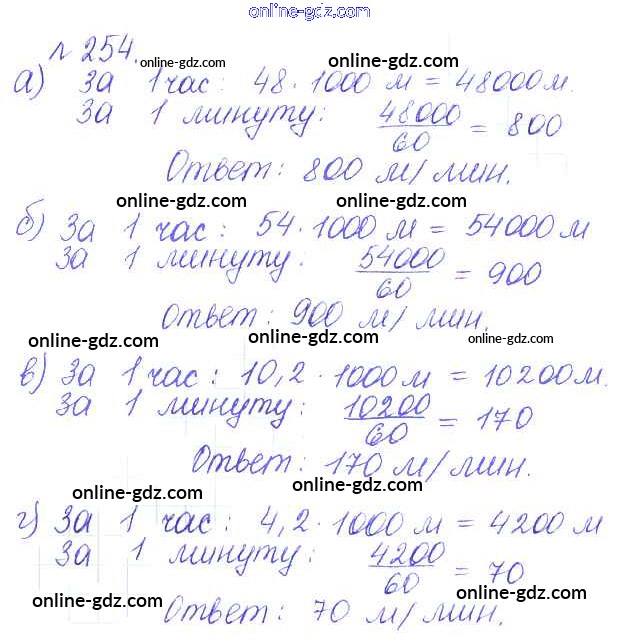 online-gdz.com
№ 254.
online-gdz.com online-gdz.com
а) За 1 час: 48 · 1000 м = 48000 м.
За 1 минуту: 48000/60 = 800
Ответ: 800 м/мин.
online-gdz.com online-gdz.com
б) За 1 час: 54 · 1000 м = 54000 м
За 1 минуту: 54000/60 = 900
Ответ: 900 м/мин.
online-gdz.com online-gdz.com online-gdz.com
в) За 1 час: 10,2 · 1000 м = 10200 м.
За 1 минуту: 10200/60 = 170
Ответ: 170 м/мин.
online-gdz.com online-gdz.com
г) За 1 час: 4,2 · 1000 м = 4200 м
За 1 минуту: 4200/60 = 70
online-gdz.com online-gdz.com
Ответ: 70 м/мин.